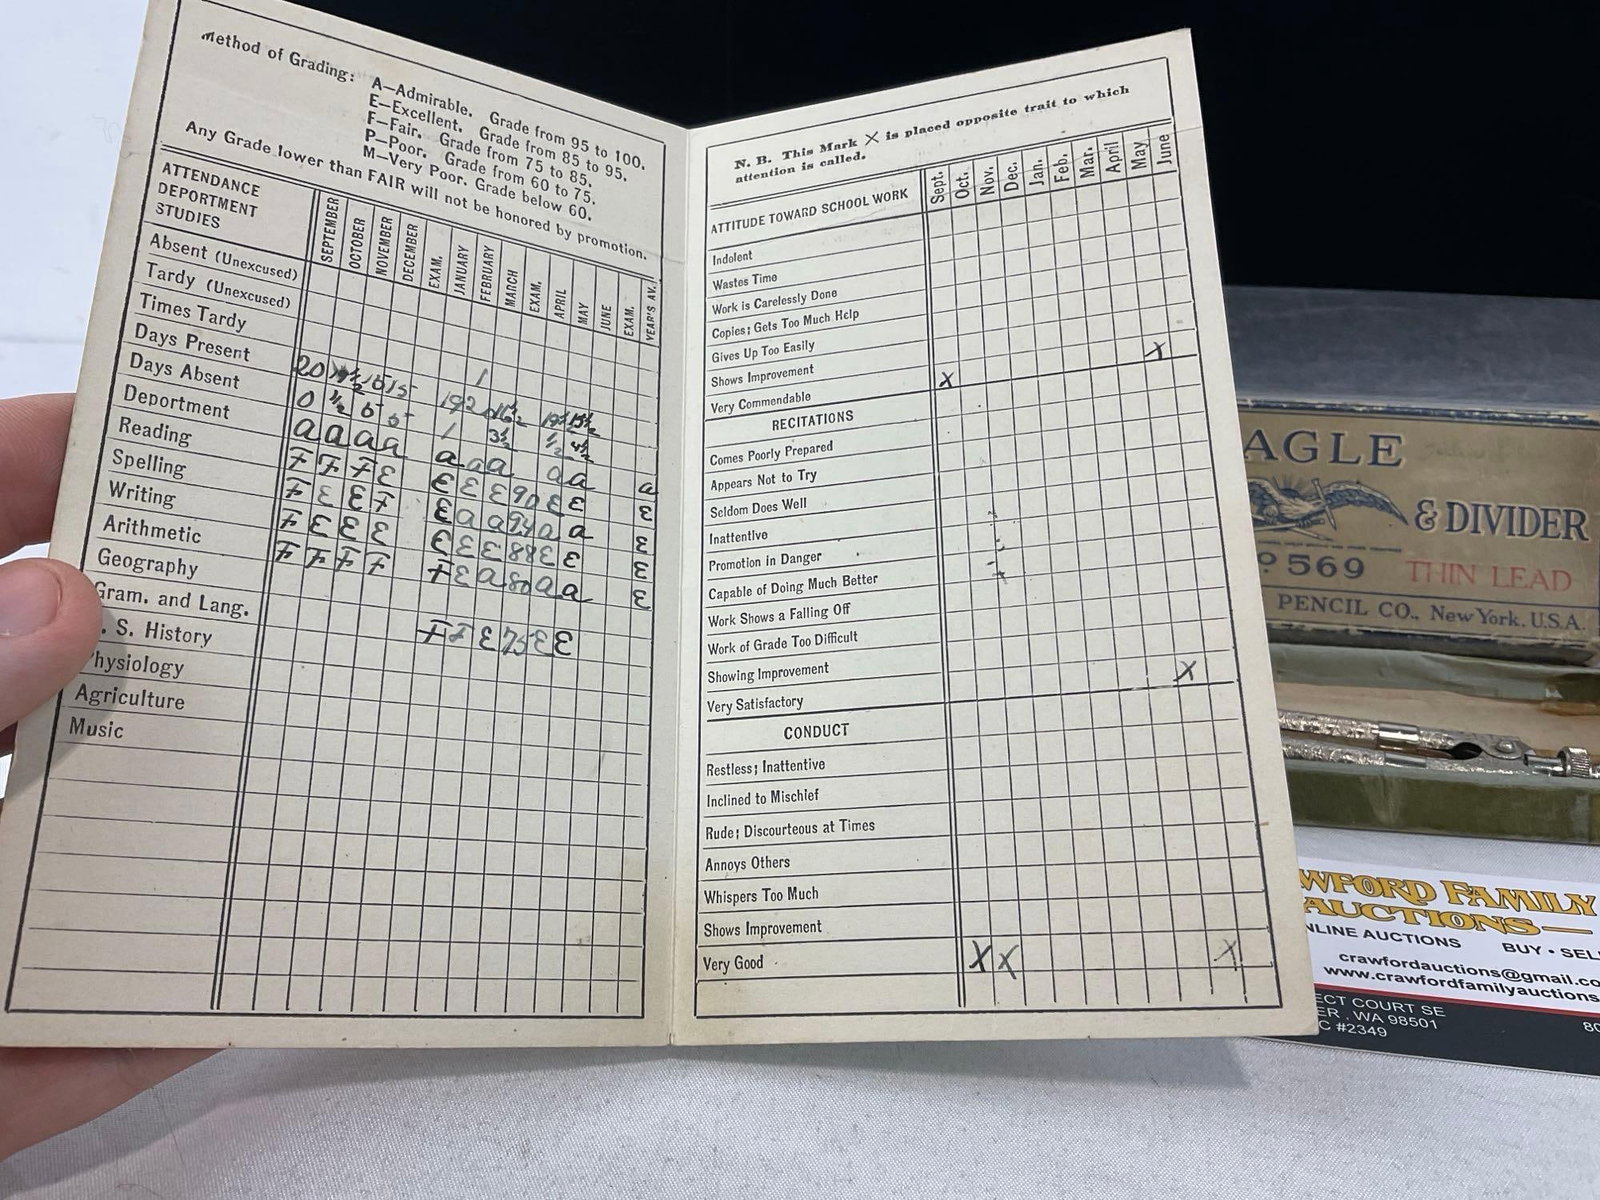 Method of Grading: A—Admirable. Grade from 95 to 100.
E—Excellent. Grade from 85 to 95.
F—Fair. Grade from 75 to 85.
P—Poor. Grade from 60 to 75.
M—Very Poor. Grade below 60.
Any Grade lower than FAIR will not be honored by promotion.
ATTENDANCE
DEPORTMENT
STUDIES
SEPTEMBER OCTOBER NOVEMBER DECEMBER EXAM. JANUARY FEBRUARY MARCH EXAM. APRIL MAY JUNE EXAM. YEAR'S AV.
Absent (Unexcused)
Tardy (Unexcused)
Times Tardy 1
Days Present 20 15 15 19
Days Absent 0 ½ 5 5 1 3½ ½ 4½
Deportment a a a a a a a a a a
Reading F F F E E E E 90 E E E
Spelling F E E F E a a 94 a a E
Writing F E E E E E E 88 E E E
Arithmetic F F F F F E a 80 a a E
Geography
Gram. and Lang. F F E 75 E E
S. History
Physiology
Agriculture
Music
N. B. This Mark X is placed opposite trait to which
attention is called.
ATTITUDE TOWARD SCHOOL WORK Sept. Oct. Nov. Dec. Jan. Feb. Mar. April May June
Indolent
Wastes Time
Work is Carelessly Done
Copies; Gets Too Much Help
Gives Up Too Easily
Shows Improvement X
Very Commendable X
RECITATIONS
Comes Poorly Prepared
Appears Not to Try
Seldom Does Well
Inattentive
Promotion in Danger
Capable of Doing Much Better
Work Shows a Falling Off
Work of Grade Too Difficult
Showing Improvement
Very Satisfactory X
CONDUCT
Restless; Inattentive
Inclined to Mischief
Rude; Discourteous at Times
Annoys Others
Whispers Too Much
Shows Improvement
Very Good X X X
AGLE
& DIVIDER
569 THIN LEAD
PENCIL CO., New York. U.S.A.
WFORD FAMILY
AUCTIONS—
NLINE AUCTIONS BUY • SEL
crawfordauctions@gmail.co
www.crawfordfamilyauctions
ECT COURT SE
ER , WA 98501
C #2349 80